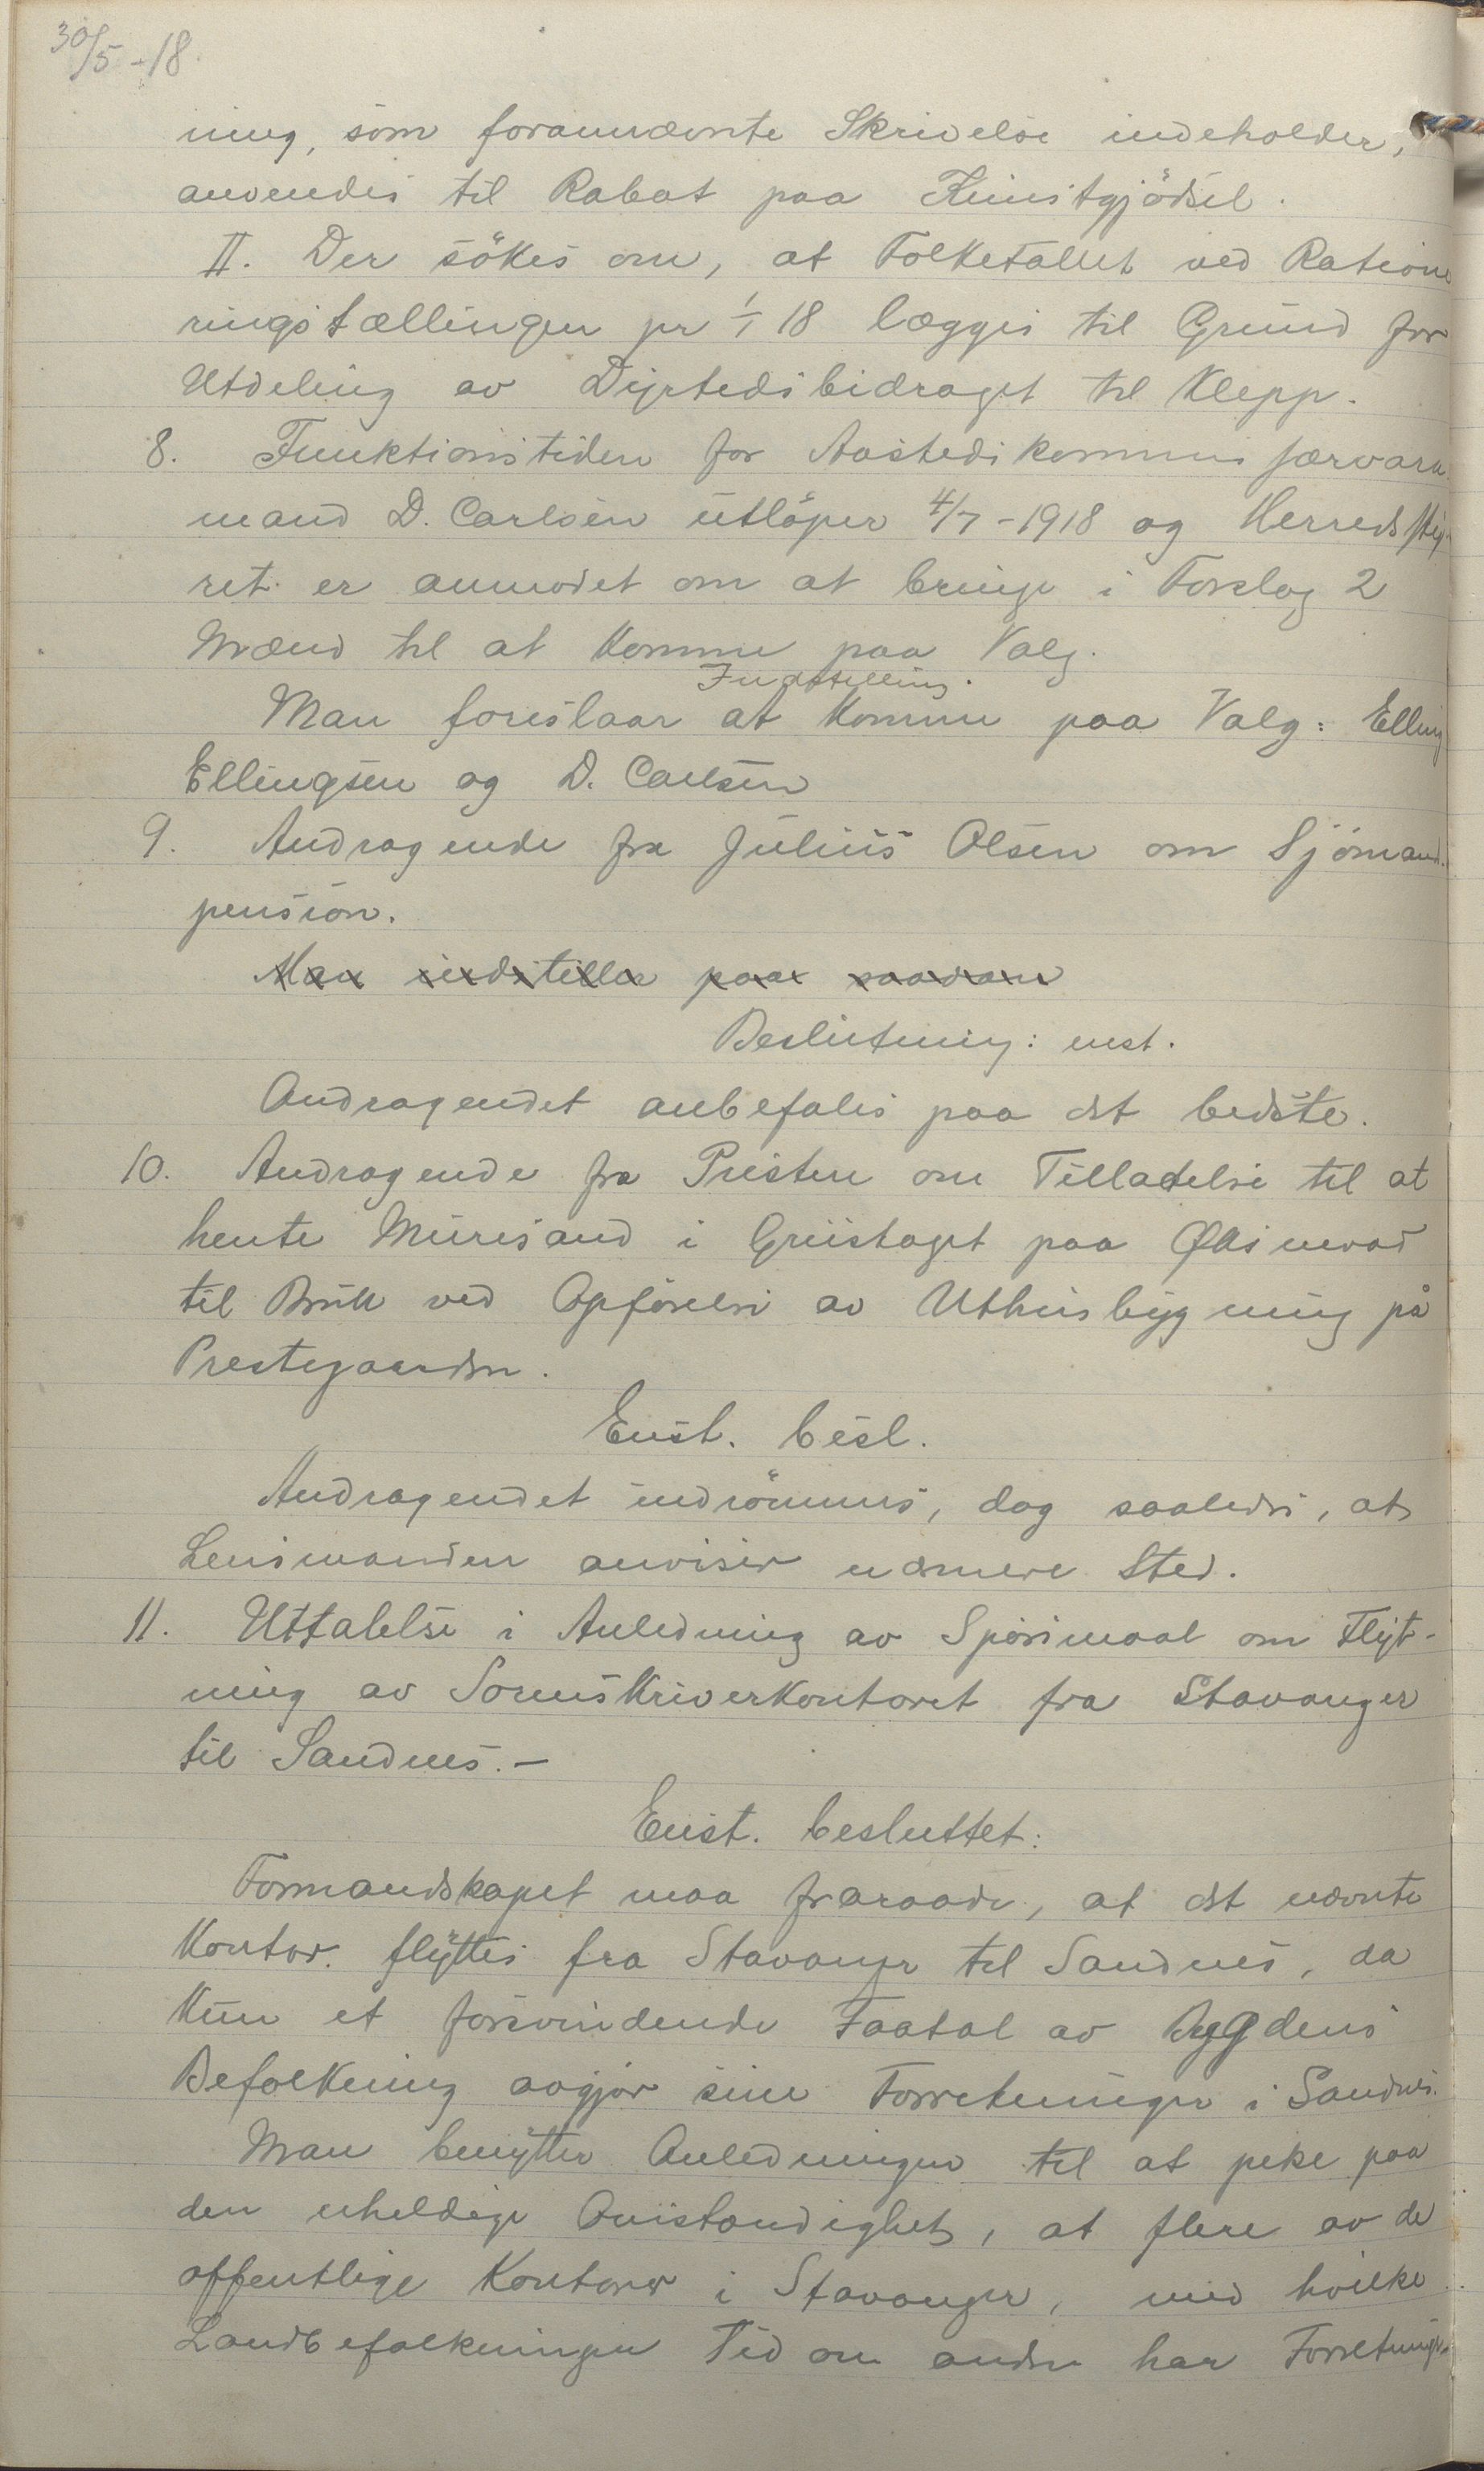 30/5 - 18.
ning, som forannævnte Skrivelse indeholder,
anvendes til Rabat paa Kunstgjödsel.
II. Der sökes om, at Folketallet ved Ratione
ringstællingen pr 1/1 18 lægges til Grund for
Utdeling av Dyrtidsbidraget til Klepp.
8. Funktionstiden for Aastedskommis færvara
mand D. Carlsen utlöper 4/7 - 1918 og Herredsty-
ret er anmodet om at bringe i Forslag 2
Mænd til at komme paa Valg.
Indstilling.
Man foreslaar at komme paa Valg: Elling
Ellingsen og D. Carlsen
9. Andragende fra Julius Olsen om Sjömand.
pension.
Man indstiller paa saadan
Beslutning: enst.
Andragendet anbefales paa det bedste.
10. Andragende fra Presten om Tilladelse til at
hente Muresand i Grustaget paa Öksnevad
til Bruk ved Opförelse av Uthusbygning på
Prestegaarden.
Enst. besl.
Andragendet indrömmes, dog saaledes, at
Lensmanden anviser nærmere Sted.
11. Uttalelse i Anledning av Spörsmaal om Flyt-
ning av Sorenskriverkontoret fra Stavanger
til Sandnes. -
Enst. besluttet:
Formandskapet maa fraraade, at det nævnte
Kontor. flyttes fra Stavanger til Sandnes, da
kun et forsvindende Faatal av Bygdens
Befolkning avgjör sine Forretninger i Sandnes.
Man benytter Anledningen til at peke paa
den uheldige Omstændighet, at flere av de
offentlige Kontorer i Stavanger, med hvilke
Landbefolkningen Tid om anden har Forretnings-